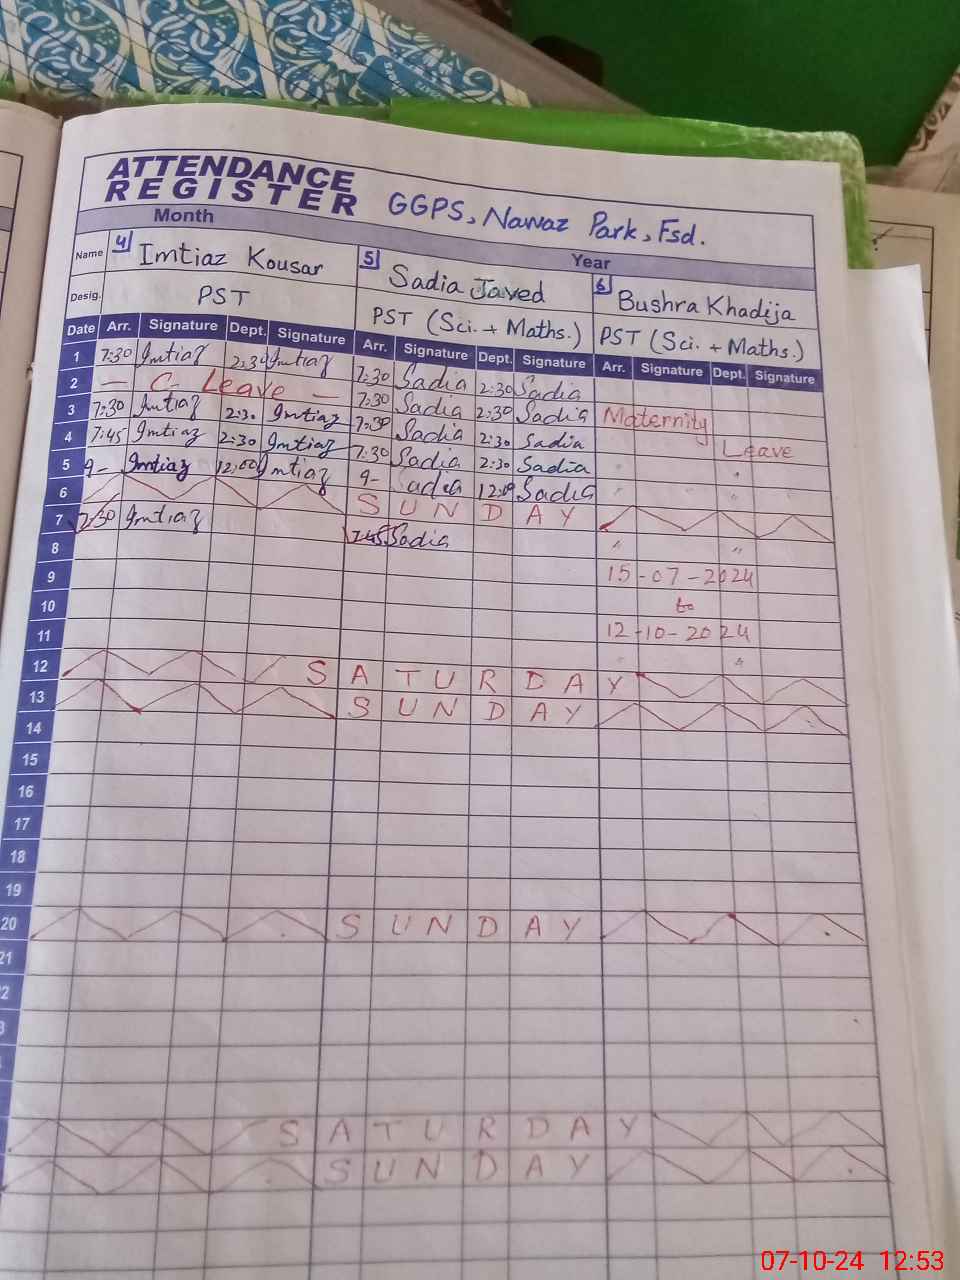 ATTENDANCE
REGISTER GGPS, Nawaz Park, Fsd.
Month Year
Name 4 Imtiaz Kousar 5 Sadia Javed 6 Bushra Khadija
Desig. PST PST (Sci. + Maths.) PST (Sci. + Maths.)
Date Arr. Signature Dept. Signature Arr. Signature Dept. Signature Arr. Signature Dept. Signature
1 7:30 Imtiaz 2:30 Imtiaz 7:30 Sadia 2:30 Sadia
2 — C- Leave — 7:30 Sadia 2:30 Sadia Maternity
3 7:30 Imtiaz 2:30 Imtiaz 7:30 Sadia 2:30 Sadia Leave
4 7:45 Imtiaz 2:30 Imtiaz 7:30 Sadia 2:30 Sadia " "
5 9- Imtiaz 12:00 Imtiaz 9- Sadia 12:00 Sadia " " "
6 SUNDAY
7 7:30 Imtiaz 7:45 Sadia " "
8 15-07-2024
9 to
10 12-10-2024
11 " "
12 SATURDAY
13 SUNDAY
14
15
16
17
18
19
20 SUNDAY
21
2
3
SATURDAY
SUNDAY
07-10-24 12:53